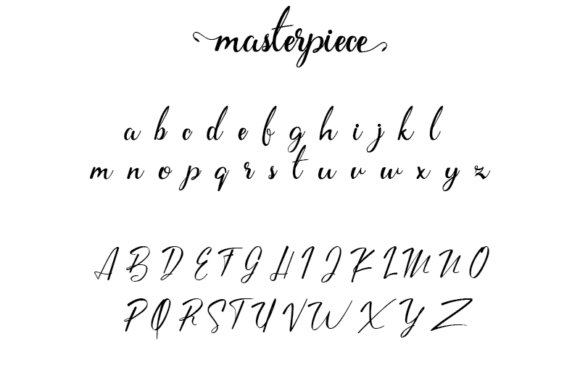 masterpiece
a b c d e f g h i j k l
m n o p q r s t u v w x y z
A B D E F G H I J K L M N O
P Q R S T U V W X Y Z